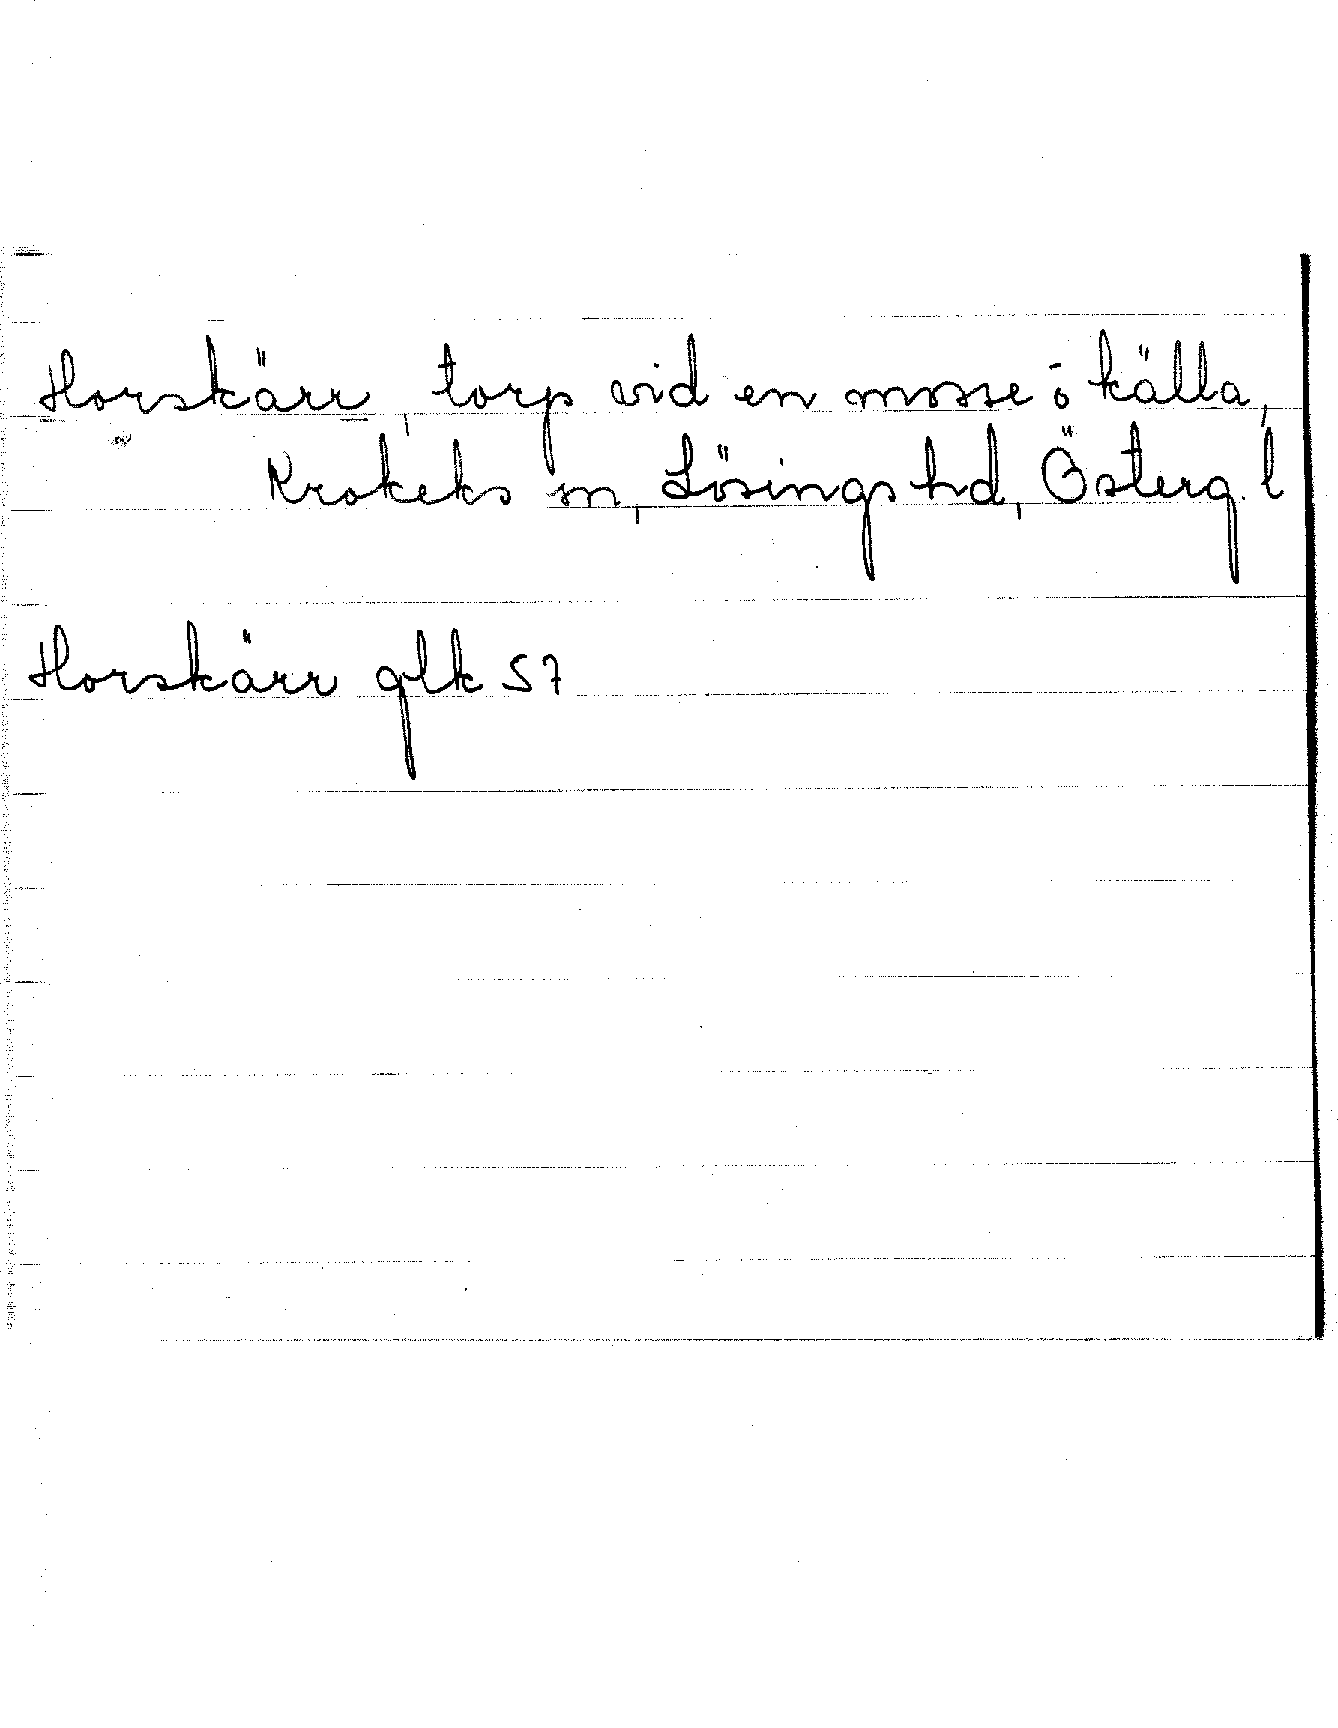 Horskärr, torp vid en mosse ō källa,
Krokeks sn, Lösings hd, Österg. l
Horskärr glk 57